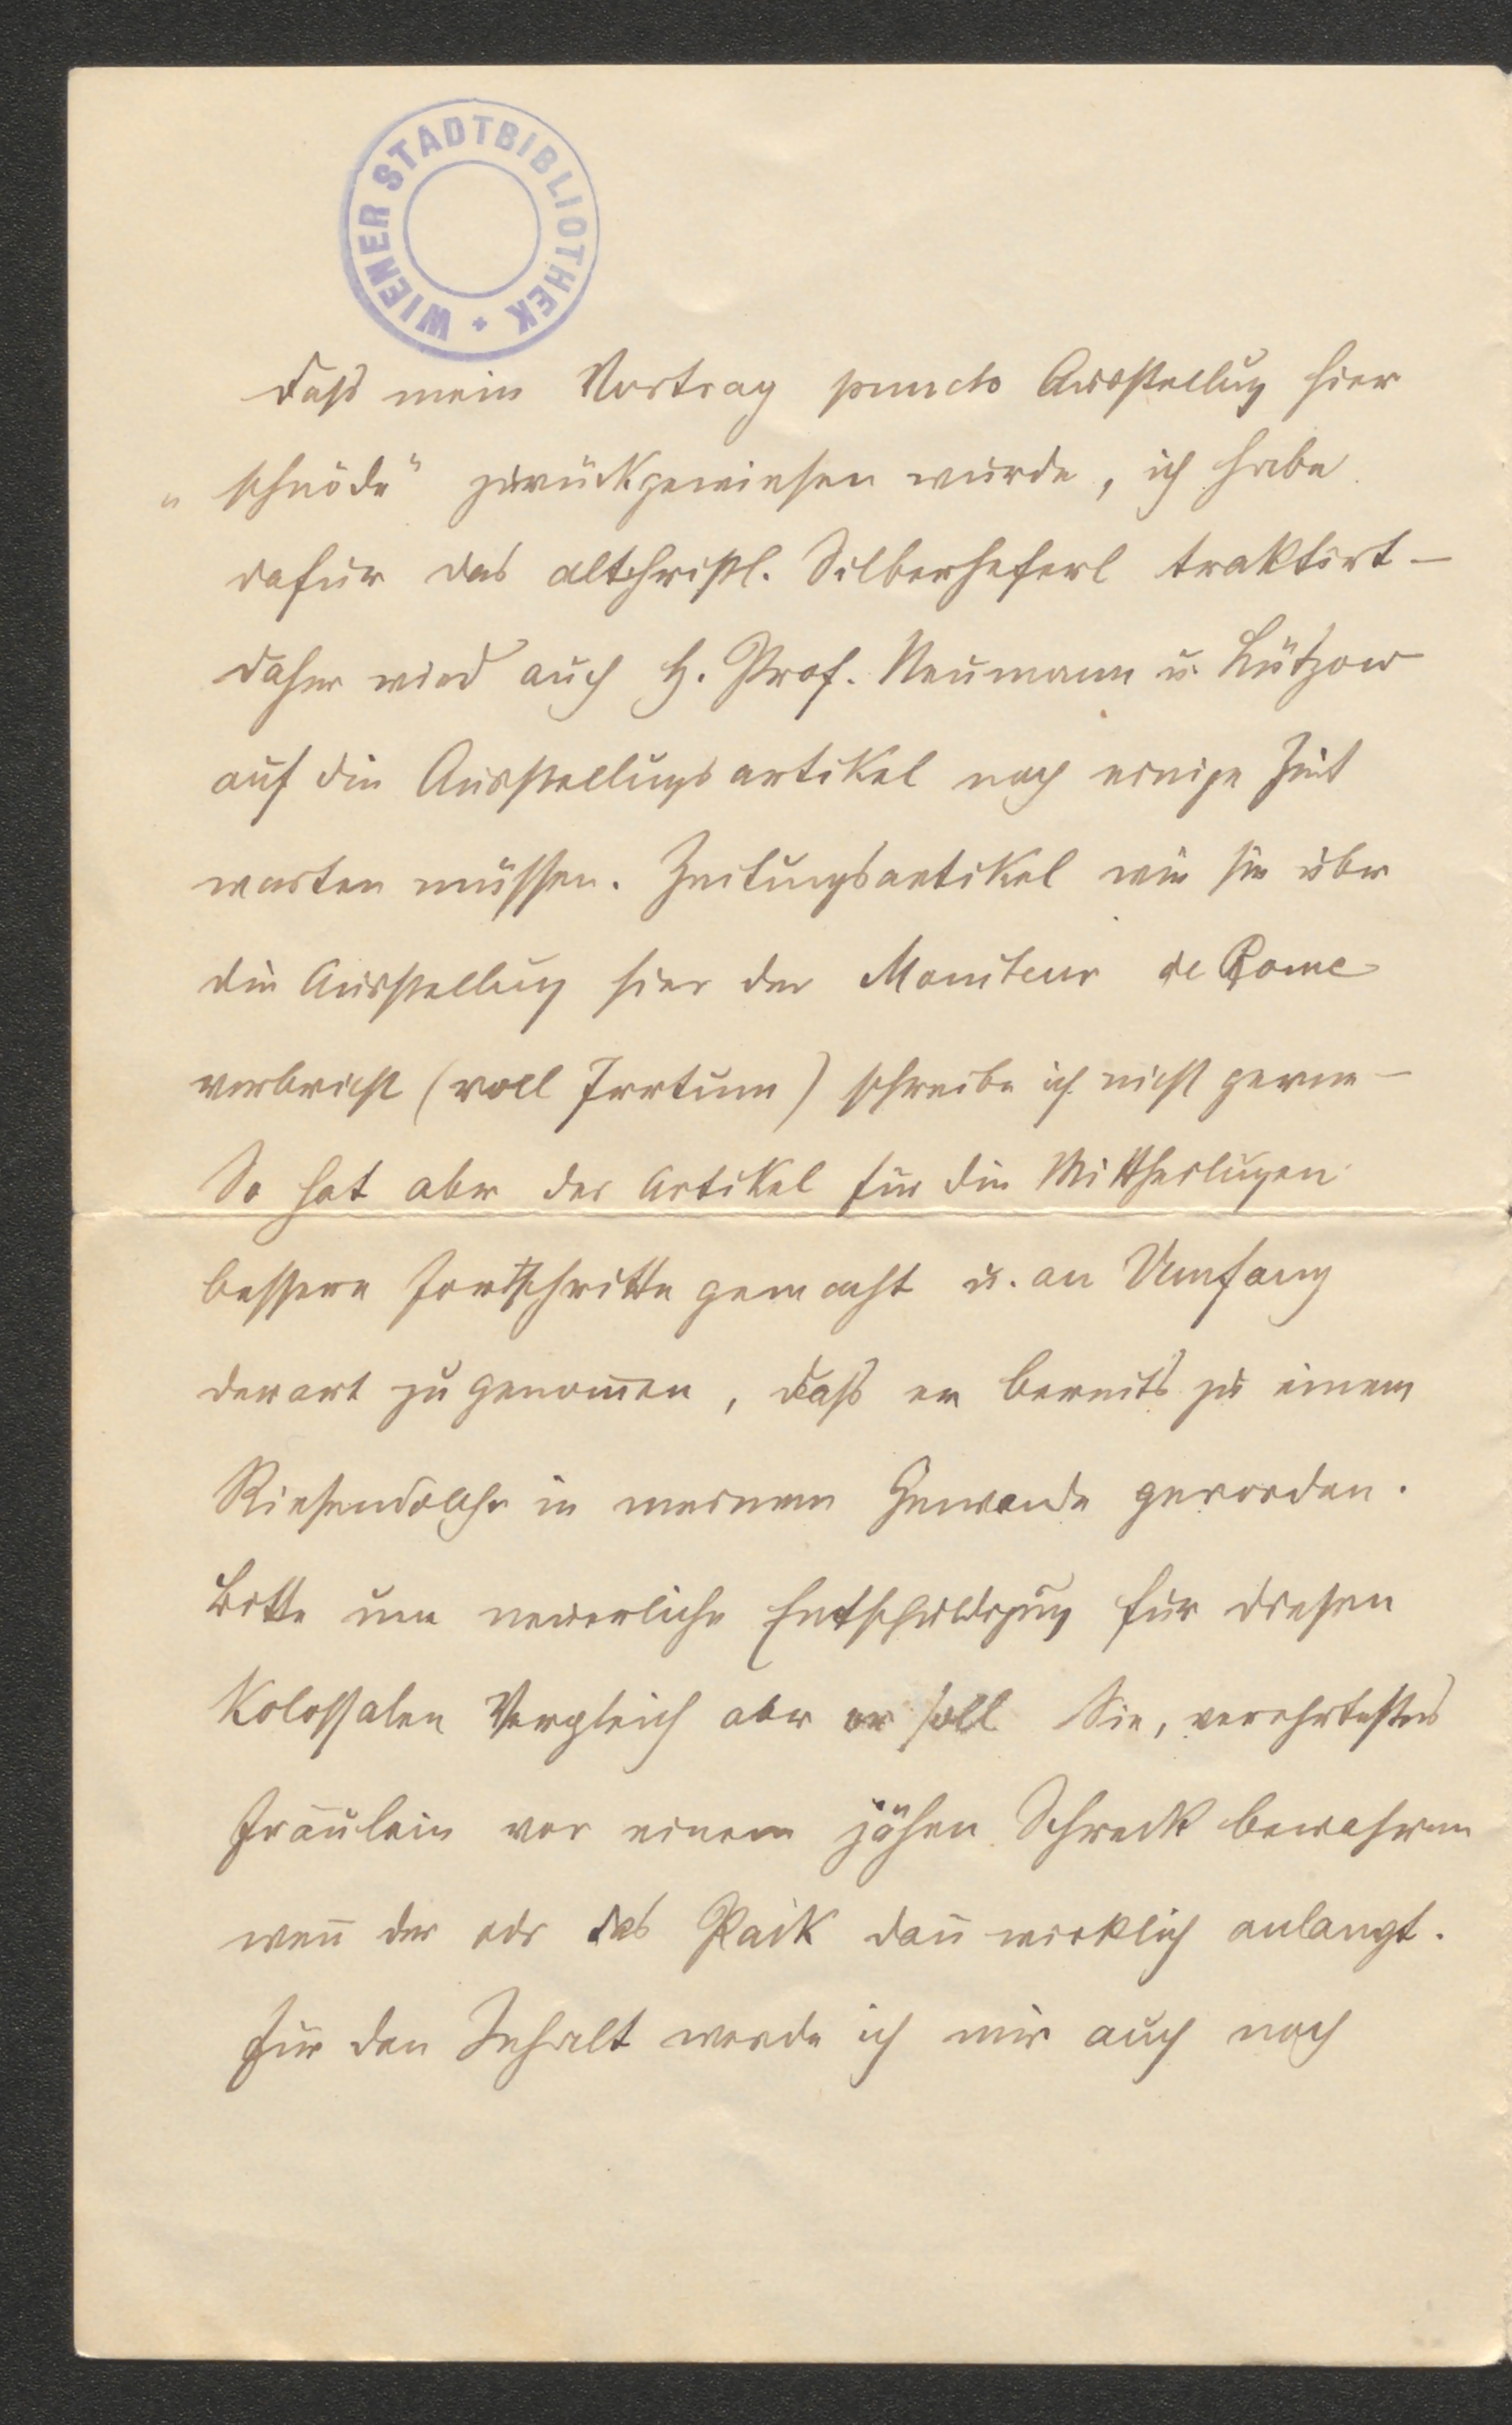 WIENER STADTBIBLIOTHEK *
Daß mein Vortrag puncto Ausstellung hier
„schnöde“ zurückgewiesen wurde, ich habe
dafür das altchristl. Silberheferl traktirt –
daher wird auch H. Prof. Neumann u. Lützow
auf die Ausstellungsartikel noch einige Zeit
warten müssen. Zeitungsartikel wie sie über
die Ausstellung hier der Moniteur de Rome
verbricht (voll Irrtum) schreibe ich nicht gerne –
So hat aber der Artikel für die Mittheilungen
bessere Fortschritte gemacht u. an Umfang
derart zugenom̅en, daß er bereits zu einem
Riesendolche in meinem Gewande geworden.
Bitte um neuerliche Entschuldigung für diesen
Kolossalen Vergleich aber er soll Sie, verehrtestes
Fräulein vor einem jähen Schreck bewahren
wen̅ der odr das Pack dan̅ wirklich anlangt.
Für den Inhalt werde ich mir auch noch